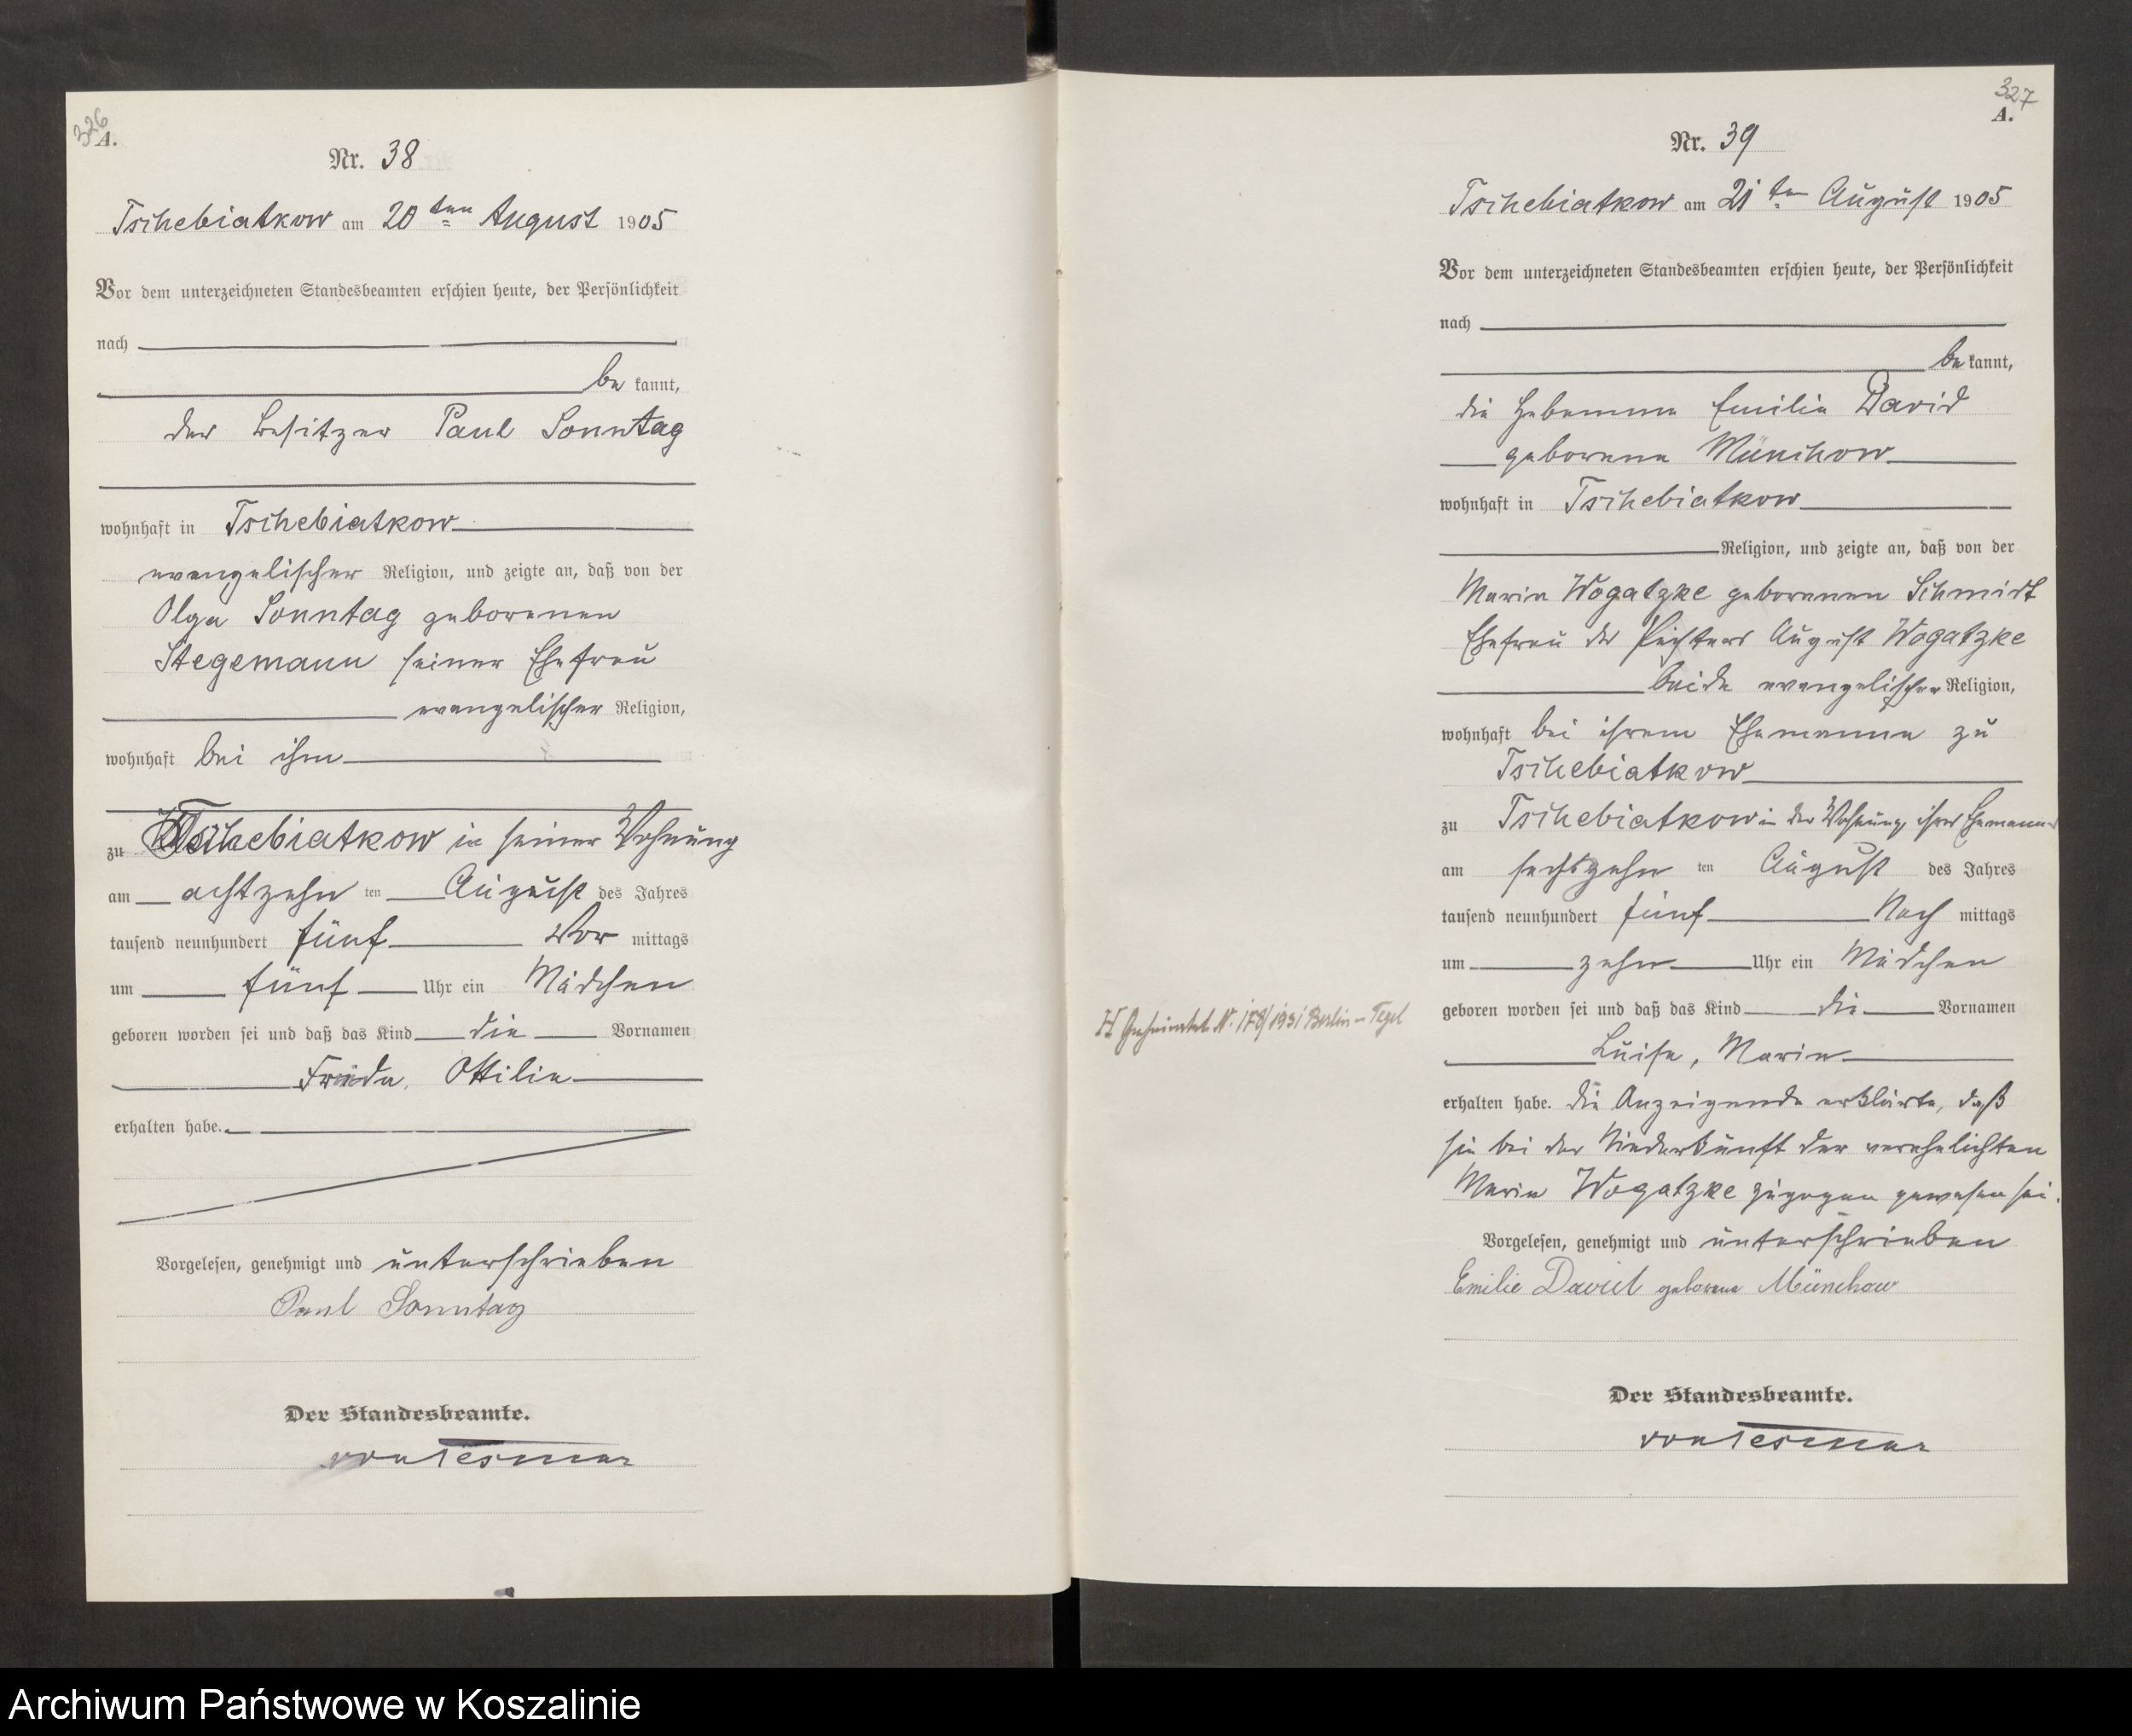 326
A.
Nr. 38
Tschebiatkow am 20ten August 1905
Vor dem unterzeichneten Standesbeamten erschien heute, der Persönlichkeit
nach
be kannt,
der Besitzer Paul Sonntag
wohnhaft in Tschebiatkow
evangelischer Religion, und zeigte an, daß von der
Olga Sonntag geborenen
Stegemann seiner Ehefrau
evangelischer Religion,
wohnhaft bei ihm
zu Tschebiatkow in seiner Wohnung
am achtzehn ten August des Jahres
tausend neunhundert fünf Vor mittags
um fünf Uhr ein Mädchen
geboren worden sei und daß das Kind die Vornamen
Frieda, Ottilie
erhalten habe.
Vorgelesen, genehmigt und unterschrieben
Paul Sonntag
Der Standesbeamte.
von Tesmar
327
A.
Nr. 39
Tschebiatkow am 21ten August 1905
Vor dem unterzeichneten Standesbeamten erschien heute, der Persönlichkeit
nach
be kannt,
die Hebamme Emilie David
geborene Münchow
wohnhaft in Tschebiatkow
Religion, und zeigte an, daß von der
Marie Wogatzke geborenen Schmidt
Ehefrau des Pächters August Wogatzke
beide evangelischer Religion,
wohnhaft bei ihrem Ehemanne zu
Tschebiatkow
zu Tschebiatkow in der Wohnung ihres Ehemannes
am sechszehn ten August des Jahres
tausend neunhundert fünf Nach mittags
um zehn Uhr ein Mädchen
geboren worden sei und daß das Kind die Vornamen
H Geheiratet N. 178/1931 Berlin-Tegel
Luise, Marie
erhalten habe. Die Anzeigende erklärte, daß
sie bei der Niederkunft der verehelichten
Marie Wogatzke zugegen gewesen sei.
Vorgelesen, genehmigt und unterschrieben
Emilie David geborene Münchow
Der Standesbeamte.
von Tesmar
Archiwum Państwowe w Koszalinie